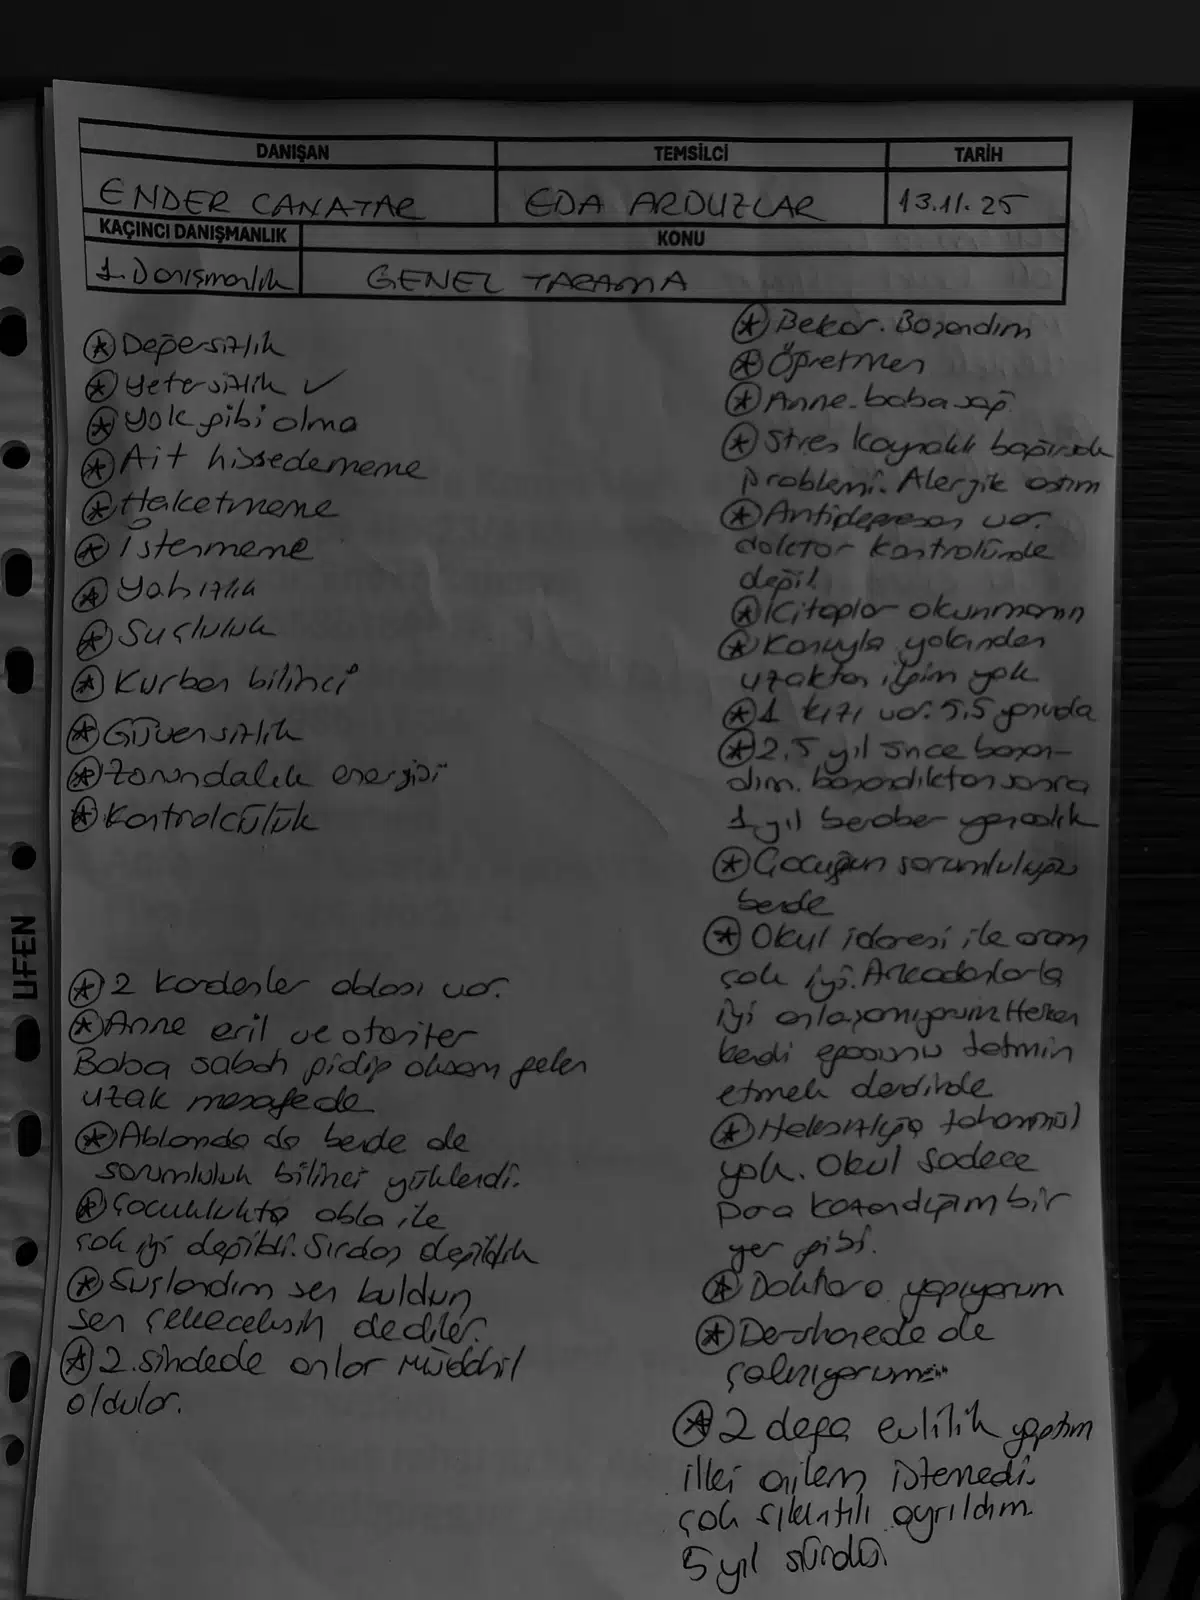 DANIŞAN
TEMSİLCİ
TARİH
ENDER CANATAR
EDA ARDUZLAR
13.11.25
KAÇINCI DANIŞMANLIK
KONU
1. Danışmanlık
GENEL TARAMA
Değersizlik
Yetersizlik ✓
Yok gibi olma
Ait hissedememe
Haketmeme
İstenmeme
Yalnızlık
Suçluluk
Kurban bilinci
Güvensizlik
Zorundalık enerjisi
Kontrolcülük
2 kardeşler ablası var.
Anne eril ve otoriter
Baba sabah gidip akşam gelen
uzak mesafede
Ablamda da bende de
sorumluluk bilinci yüklendi.
Çocuklukta abla ile
çok iyi değildi. Sırdaş değildik
Suçlandım sen buldun
sen çekeceksin dediler.
2.sindede onlar müdahil
oldular.
Bekar. Boşandım
Öğretmen
Anne-baba sağ
Stres kaynaklı bağırsak
problemi. Alerjik astım
Antidepresan var.
doktor kontrolünde
değil
Kitaplar okunmamış
Konuyla yakından
uzaktan ilgim yok
1 kızı var. 5,5 yaşında
2,5 yıl önce boşan-
dım. boşandıktan sonra
1 yıl beraber yaşadık
Çocuğun sorumluluğu
bende
Okul idaresi ile aram
çok iyi. Arkadaşlarla
iyi anlaşamıyoruz. Herkes
kendi egosunu tatmin
etmek derdinde
Haksızlığa tahammül
yok. Okul sadece
para kazandığım bir
yer gibi.
Doktora yapıyorum
Dershanede de
çalışıyorum
2 defa evlilik yaptım
ilki ailem istemedi.
çok sıkıntılı ayrıldım.
5 yıl sürdü
UFEN